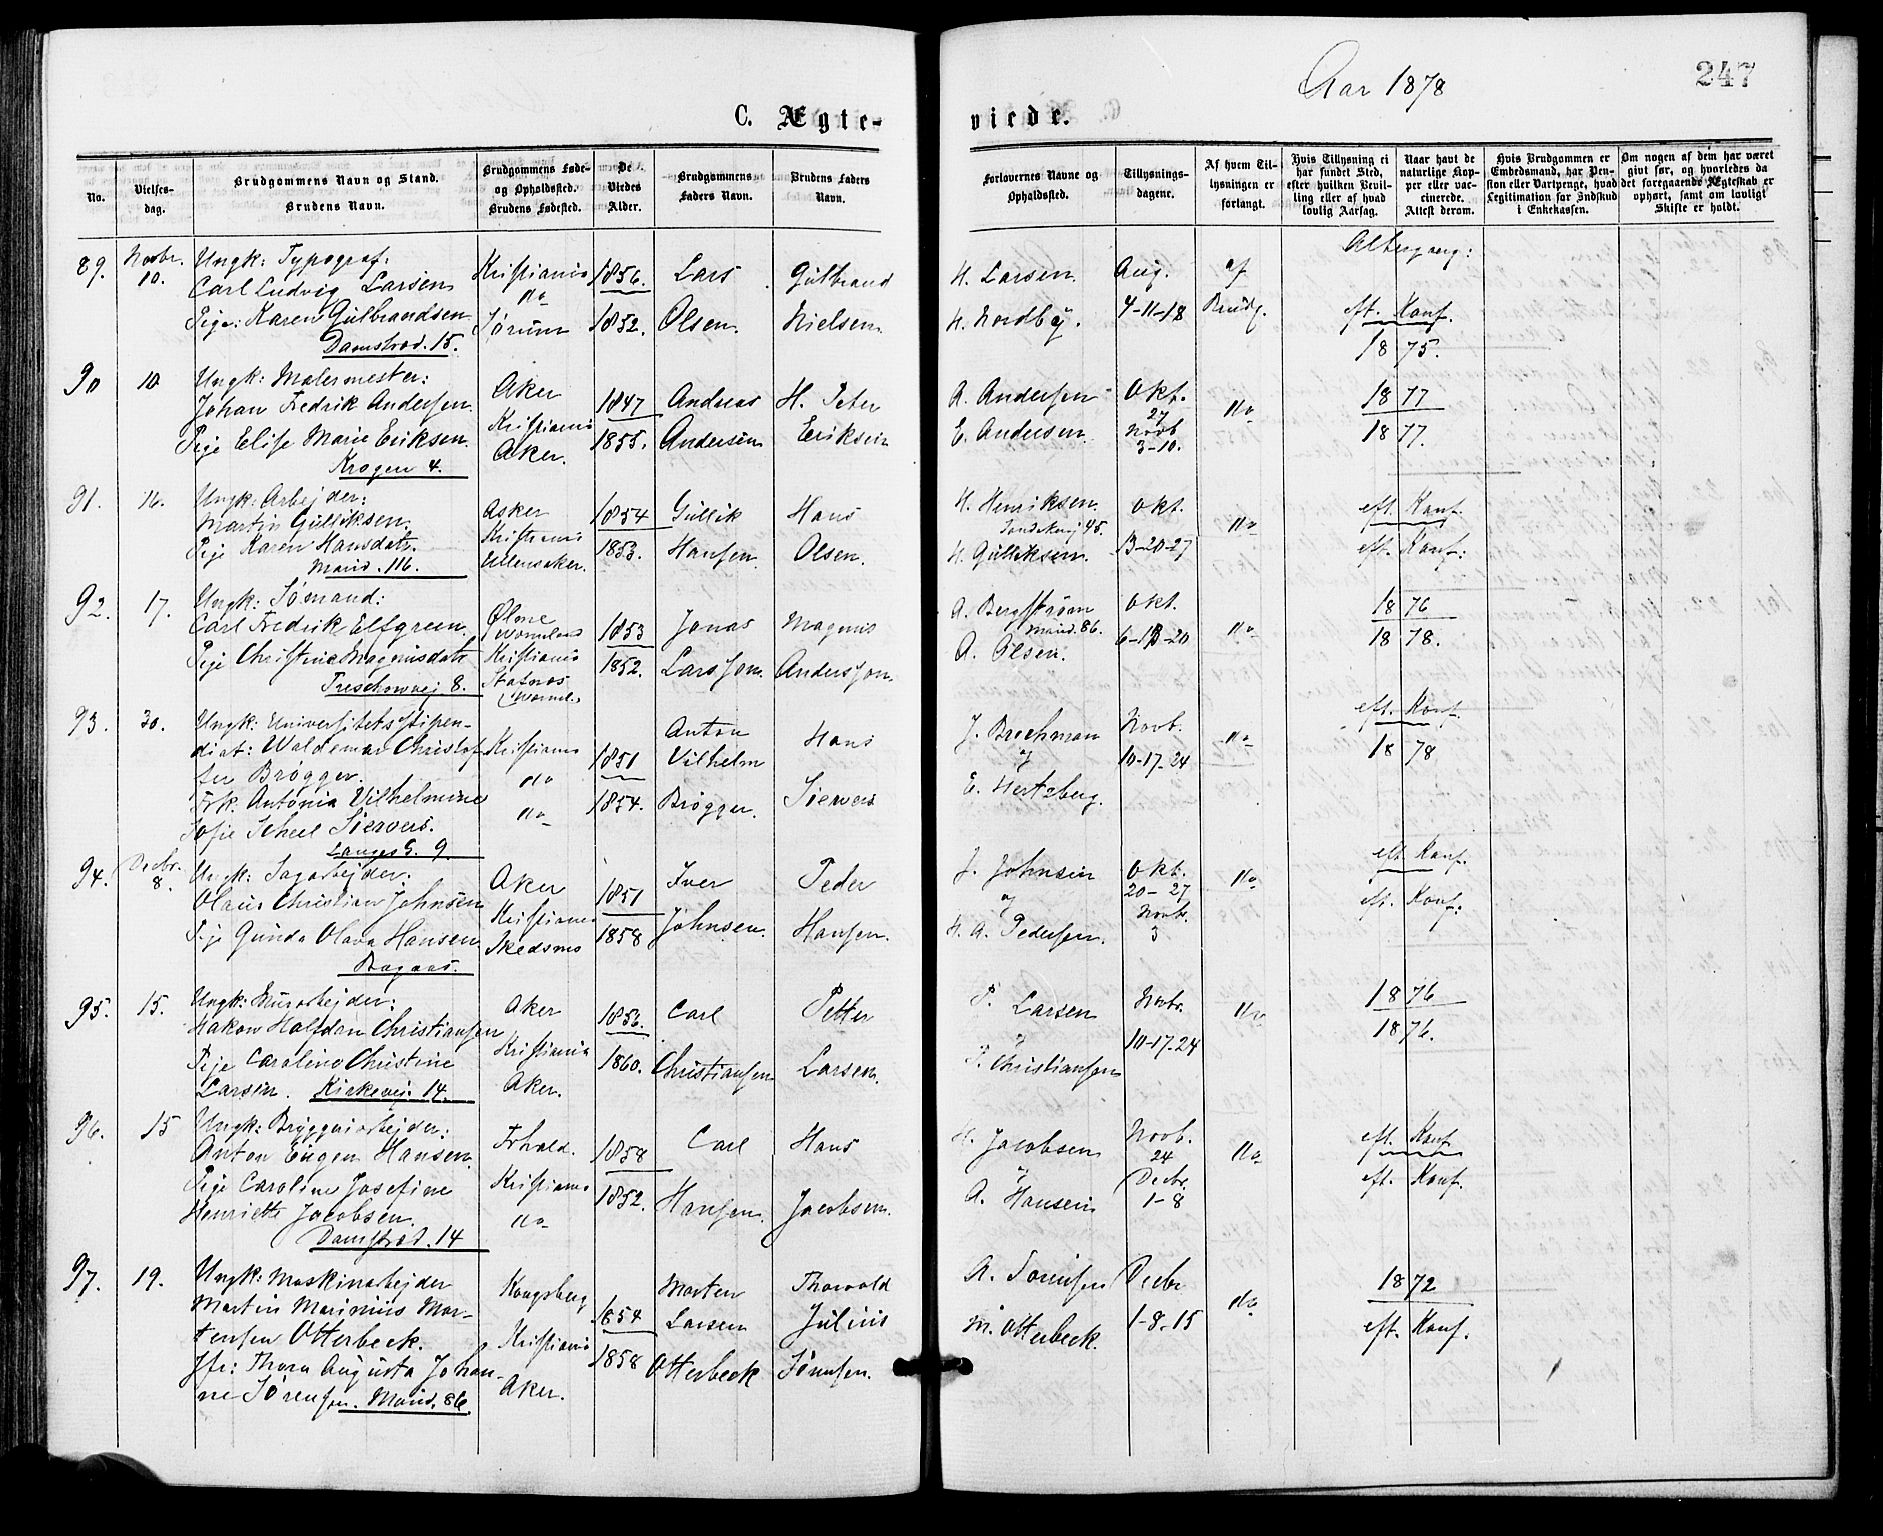 Aar 1878
247
C. Ægte-
viede.
No.
Vielses-
dag.
Brudgommens Navn og Stand.
Brudens Navn.
Brudgommens Føde-
og Opholdssted.
Brudens Fødested.
De
Viedes
Alder.
Brudgommens
Faders Navn.
Brudens Faders
Navn.
Forlovernes Navne og
Opholdssted.
Tillysnings-
dagene.
Af hvem Til-
lysningen er
forlangt.
Hvis Tillysning ei
har fundet Sted,
efter hvilken Bevil-
ling eller af hvad
lovlig Aarsag.
Naar havt de
naturlige Kop-
per eller vac-
cinerede.
Attest derom.
Hvis Brudgommen er
Embedsmand, har Pen-
sion eller Vartpenge, hvad
Legitimation for Indskud
i Enkekassen.
Om nogen af dem har været
givt før, og hvorledes da
det foregaaende Ægteskab er
ophørt, samt om lovligt
Skifte er holdt.
Altergang:
89. Novbr. 10.
Ungk: Typograf:
Carl Ludvig Larsen
Pige: Karen Gulbrandsen
Damstræd. 15.
Kristiania
do
Sørum
1856.
1852.
Lars
Olsen.
Gulbrand
Nielsen
H. Larsen.
H. Nordby.
Aug.
4-11-18
af
Brudg.
eft. Konf.
1875.
90 10
Ungk: Malermester:
Johan Fredrik Andersen
Pige Elise Marie Eriksen.
Krogen 4.
Aker
Kristiania
Aker.
1847
1855.
Andreas
Andersen
H. Peter
Eriksen
A. Andersen
E. Andersen
Okt.
27
Novb
3-10.
do
1877
1877.
91. 16.
Ungk: Arbejder:
Martin Gulliksen.
Pige Karen Hansdatr.
Marid. 116.
Asker
Kristiania
Ullensaker.
1854
1853.
Gullik
Hansen
Hans
Olsen.
H. Henriksen
45.
H. Gulliksen
Okt.
13-20-27
do
eft. Konf.
eft. Konf:
92. 17.
Ungk: Sømand:
Carl Fredrik Elfgreen
Pige Christine Magnusdatr
Treschowvej 8.
Ølme
Kristiania
1853
1852.
Jonas
Larsson.
Magnus
Andersson.
A. Bergstrøm
Marid. 86.
A. Olsen.
Okt.
6-13-20
do
1876
1878.
93. 30.
Ungk: Universitetsstipen-
diat: Waldemar Christof-
fer Brøgger.
Frk. Antonia Vilhelmine
Sofie Scheel Siewers.
Langes G. 9
Kristiania
do
do
1851
1854.
Anton
Vilhelm
Brøgger.
Hans
Siewers
J. Brochman
og
E. Hertzberg.
Novb.
10-17-24
do
eft. Konf.
1878
94. Decbr. 8.
Ungk: Sagarbejder:
Olaus Christian Johnsen
Pige Gunda Olava Hansen
Aker
Kristiania
Skedsmo
1851
1858
Iver
Johnsen.
Peder
Hansen.
J. Johnsen
og
H. A. Pedersen.
Okt.
20-27
Novbr.
3
do
eft. Konf.
eft. Konf:
95. 15.
Ungk: Murarbejder:
Hakon Halfdan Christiansen
Pige Caroline Christine
Larsen. Kirkevej. 14.
Aker
Kristiania
Aker.
1856.
1860.
Carl
Christiansen
Petter
Larsen.
P. Larsen
og
P. Christiansen
Novbr.
10-17-24
do
1876
1876.
96. 15
Ungk: Bryggeriarbejder:
Anton Eugen Hansen.
Pige Caroline Josefine
Henriette Jacobsen.
Damstræd. 14
Frhald.
Kristiania
do
1858
1852.
Carl
Hansen.
Hans
Jacobsen.
H. Jacobsen
og
A. Hansen
Novb.
24
Decbr.
1-8
do
eft. Konf
eft. Konf.
97. 19.
Ungk: Maskinarbejder
Martin Marinius Mor-
tensen Otterbeck.
Jfr: Thora Augusta Johan-
ne Sørensen. Marid. 86.
Kongsberg
Kristiania
Aker.
1854
1858
Morten
Larsen
Otterbeck
Thorvald
Julius
Sørensen.
A. Sørensen
M. Otterbeck.
Decbr
1-8-15
do
1872
eft. Konf.